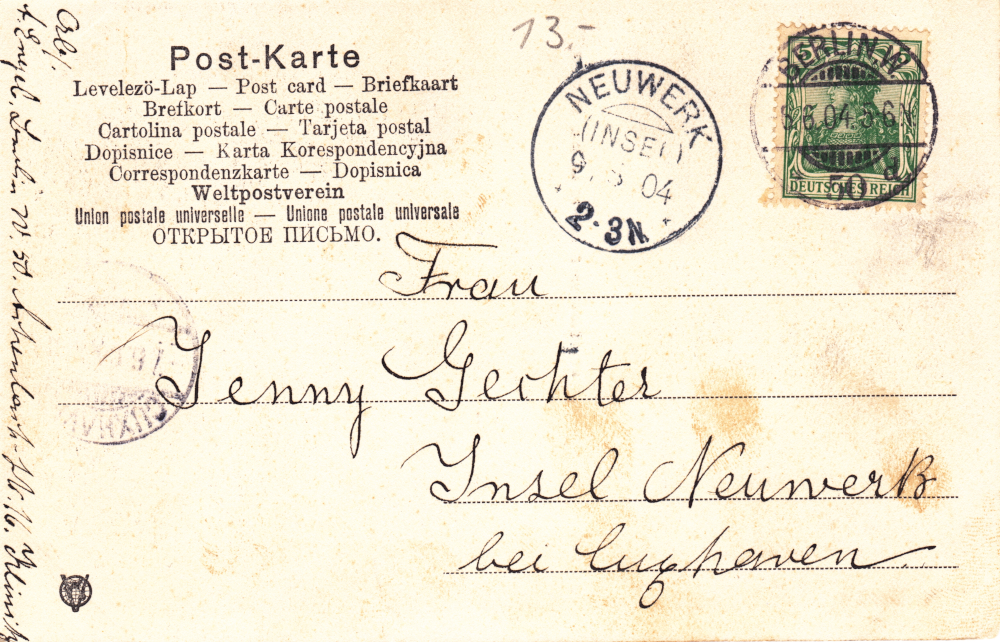 13.-
Post-Karte
Levelezö-Lap — Post card — Briefkaart
Brefkort — Carte postale
Cartolina postale — Tarjeta postal
Dopisnice — Karta Korespondencyjna
Correspondenzkarte — Dopisnica
Weltpostverein
Union postale universelle — Unione postale universale
ОТКРЫТОЕ ПИСЬМО.
NEUWERK
(INSEL)
9. 04
2-3N.
BERLIN.W.
6.04.5-6N
50
DEUTSCHES REICH
Frau
Jenny Gechter
Insel Neuwerk
bei Cuxhaven
CUXHAV
Abs.
Engel. Berlin W. 50.